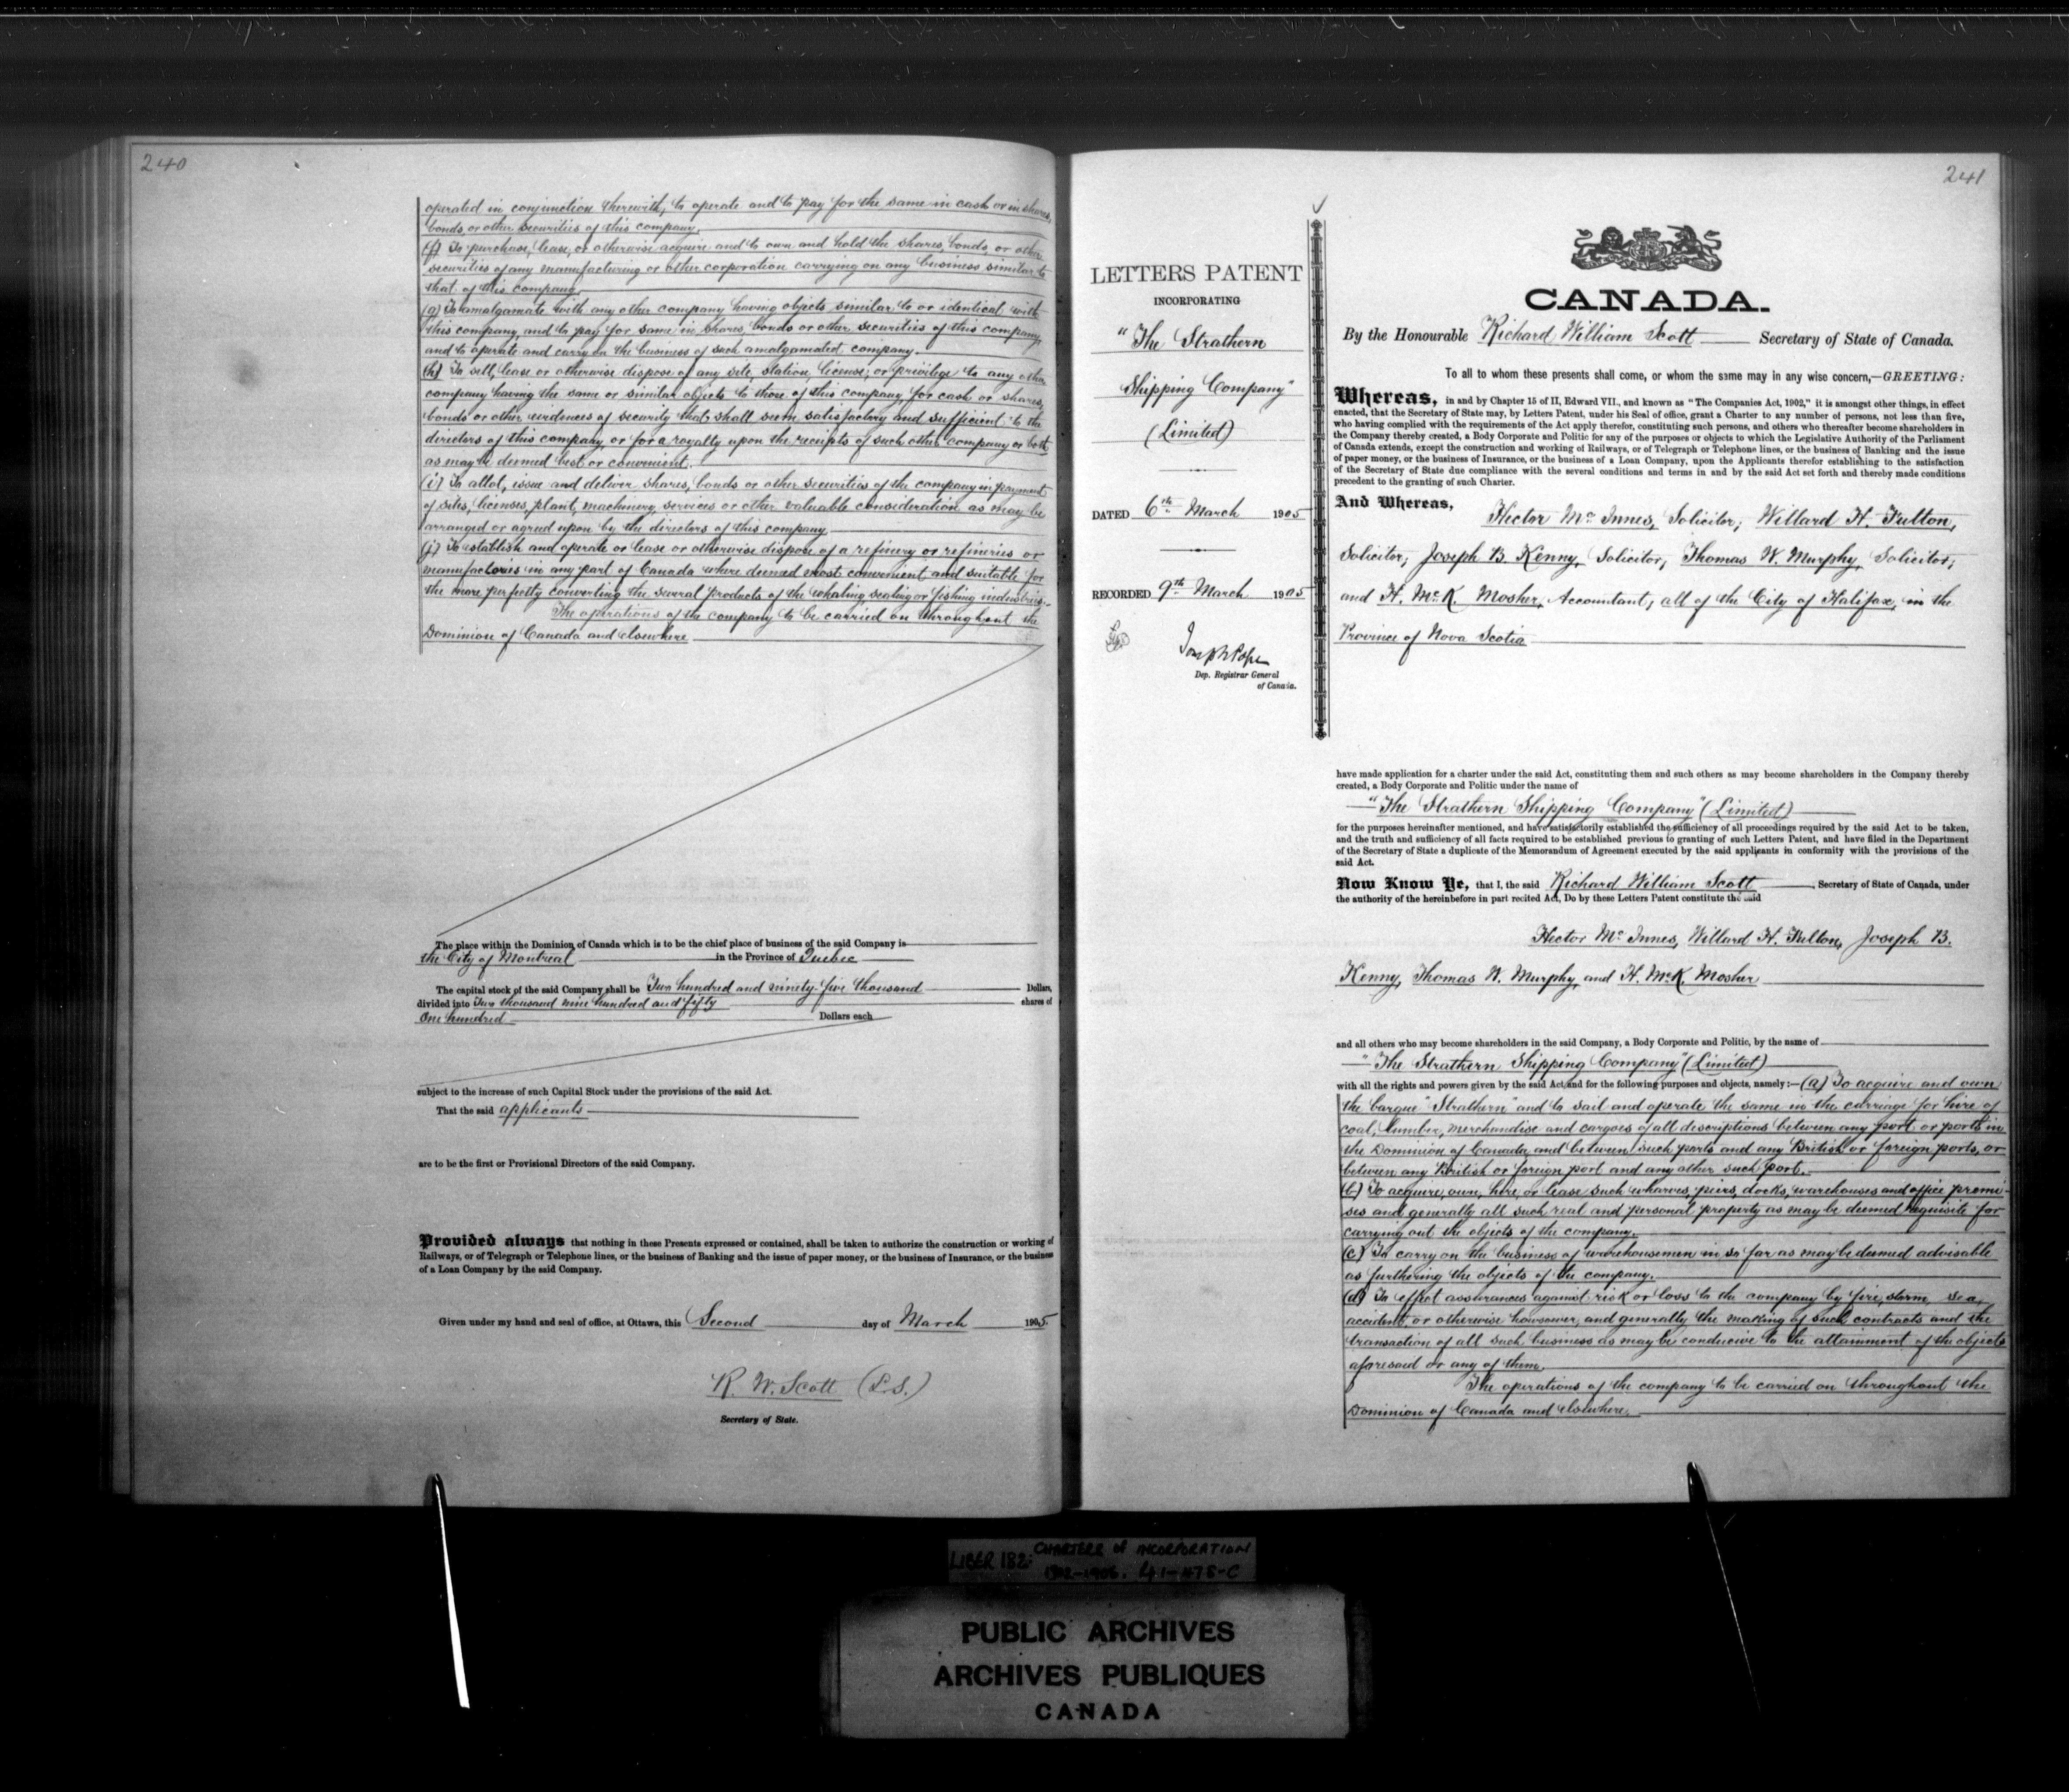 240
operated in conjunction therewith, to operate and to pay for the same in cash or in shares,
bonds, or other securities of this company.
(f) To purchase, lease, or otherwise acquire and to own and hold the shares, bonds, or other
securities of any manufacturing or other corporation carrying on any business similar to
that of this company.
(g) To amalgamate with any other company having objects similar to or identical with
this company, and to pay for same in shares, bonds or other securities of this company,
and to operate and carry on the business of such amalgamated company.
(h) To sell, lease or otherwise dispose of any site, station, license, or privilege to any other
company having the same or similar objects to those of this company, for cash or shares,
bonds or other evidences of security that shall seem satisfactory and sufficient to the
directors of this company or for a royalty upon the receipts of such other company or both
as may be deemed best or convenient.
(i) To allot, issue and deliver shares, bonds or other securities of the company in payment
of sites, licenses, plant, machinery, services or other valuable consideration as may be
arranged or agreed upon by the directors of this company
(j) To establish and operate or lease or otherwise dispose of a refinery or refineries or
manufactories in any part of Canada where deemed most convenient and suitable for
the more perfectly converting the several products of the whaling sealing or fishing industries.
The operations of the company to be carried on throughout the
Dominion of Canada and elsewhere
The place within the Dominion of Canada which is to be the chief place of business of the said Company is
the City of Montreal in the Province of Quebec
The capital stock of the said Company shall be Two hundred and ninety-five thousand Dollars,
divided into Two thousand nine hundred and fifty shares of
One hundred Dollars each
subject to the increase of such Capital Stock under the provisions of the said Act.
That the said applicants
are to be the first or Provisional Directors of the said Company.
Provided always that nothing in these Presents expressed or contained, shall be taken to authorize the construction or working of
Railways, or of Telegraph or Telephone lines, or the business of Banking and the issue of paper money, or the business of Insurance, or the business
of a Loan Company by the said Company.
Given under my hand and seal of office, at Ottawa, this Second day of March 1905.
R. W. Scott (L.S.)
Secretary of State.
241
LETTERS PATENT
INCORPORATING
"The Strathern
Shipping Company"
(Limited)
DATED 6th March 1905
RECORDED 9th March 1905
Joseph Pope
Dep. Registrar General
of Canada.
CANADA.
By the Honourable Richard William Scott Secretary of State of Canada.
To all to whom these presents shall come, or whom the same may in any wise concern,—GREETING:
Whereas, in and by Chapter 15 of II, Edward VII., and known as "The Companies Act, 1902," it is amongst other things, in effect
enacted, that the Secretary of State may, by Letters Patent, under his Seal of office, grant a Charter to any number of persons, not less than five,
who having complied with the requirements of the Act apply therefor, constituting such persons, and others who thereafter become shareholders in
the Company thereby created, a Body Corporate and Politic for any of the purposes or objects to which the Legislative Authority of the Parliament
of Canada extends, except the construction and working of Railways, or of Telegraph or Telephone lines, or the business of Banking and the issue
of paper money, or the business of Insurance, or the business of a Loan Company, upon the Applicants therefor establishing to the satisfaction
of the Secretary of State due compliance with the several conditions and terms in and by the said Act set forth and thereby made conditions
precedent to the granting of such Charter.
And Whereas,
Hector McInnes, Solicitor; Willard H. Fulton,
Solicitor; Joseph B. Kenny, Solicitor; Thomas W. Murphy, Solicitor;
and H. McK. Mosher, Accountant; all of the City of Halifax, in the
Province of Nova Scotia
have made application for a charter under the said Act, constituting them and such others as may become shareholders in the Company thereby
created, a Body Corporate and Politic under the name of
"The Strathern Shipping Company" (Limited)
for the purposes hereinafter mentioned, and have satisfactorily established the sufficiency of all proceedings required by the said Act to be taken,
and the truth and sufficiency of all facts required to be established previous to granting of such Letters Patent, and have filed in the Department
of the Secretary of State a duplicate of the Memorandum of Agreement executed by the said applicants in conformity with the provisions of the
said Act.
Now Know Ye, that I, the said Richard William Scott, Secretary of State of Canada, under
the authority of the hereinbefore in part recited Act, Do by these Letters Patent constitute the said
Hector McInnes, Willard H. Fulton, Joseph B.
Kenny, Thomas W. Murphy, and H. McK. Mosher
and all others who may become shareholders in the said Company, a Body Corporate and Politic, by the name of
"The Strathern Shipping Company" (Limited)
with all the rights and powers given by the said Act and for the following purposes and objects, namely:—(a) To acquire and own
the barque "Strathern" and to sail and operate the same in the carriage for hire of
coal, lumber, merchandise and cargoes of all descriptions between any port or ports in
the Dominion of Canada and between such ports and any British or foreign ports, or
between any British or foreign port and any other such port.
(b) To acquire, own, hire, or lease such wharves, piers, docks, warehouses and office premi-
ses and generally all such real and personal property as may be deemed requisite for
carrying out the objects of the company.
(c) To carry on the business of warehousemen in so far as may be deemed advisable
as furthering the objects of the company.
(d) To effect assurances against risk or loss to the company by fire, storm, sea,
accident, or otherwise howsoever, and generally the making of such contracts and the
transaction of all such business as may be conducive to the attainment of the objects
aforesaid or any of them.
The operations of the company to be carried on throughout the
Dominion of Canada and elsewhere.
LIBER 182: CHARTERS of INCORPORATION
1902-1906. 41-475-C
PUBLIC ARCHIVES
ARCHIVES PUBLIQUES
CANADA